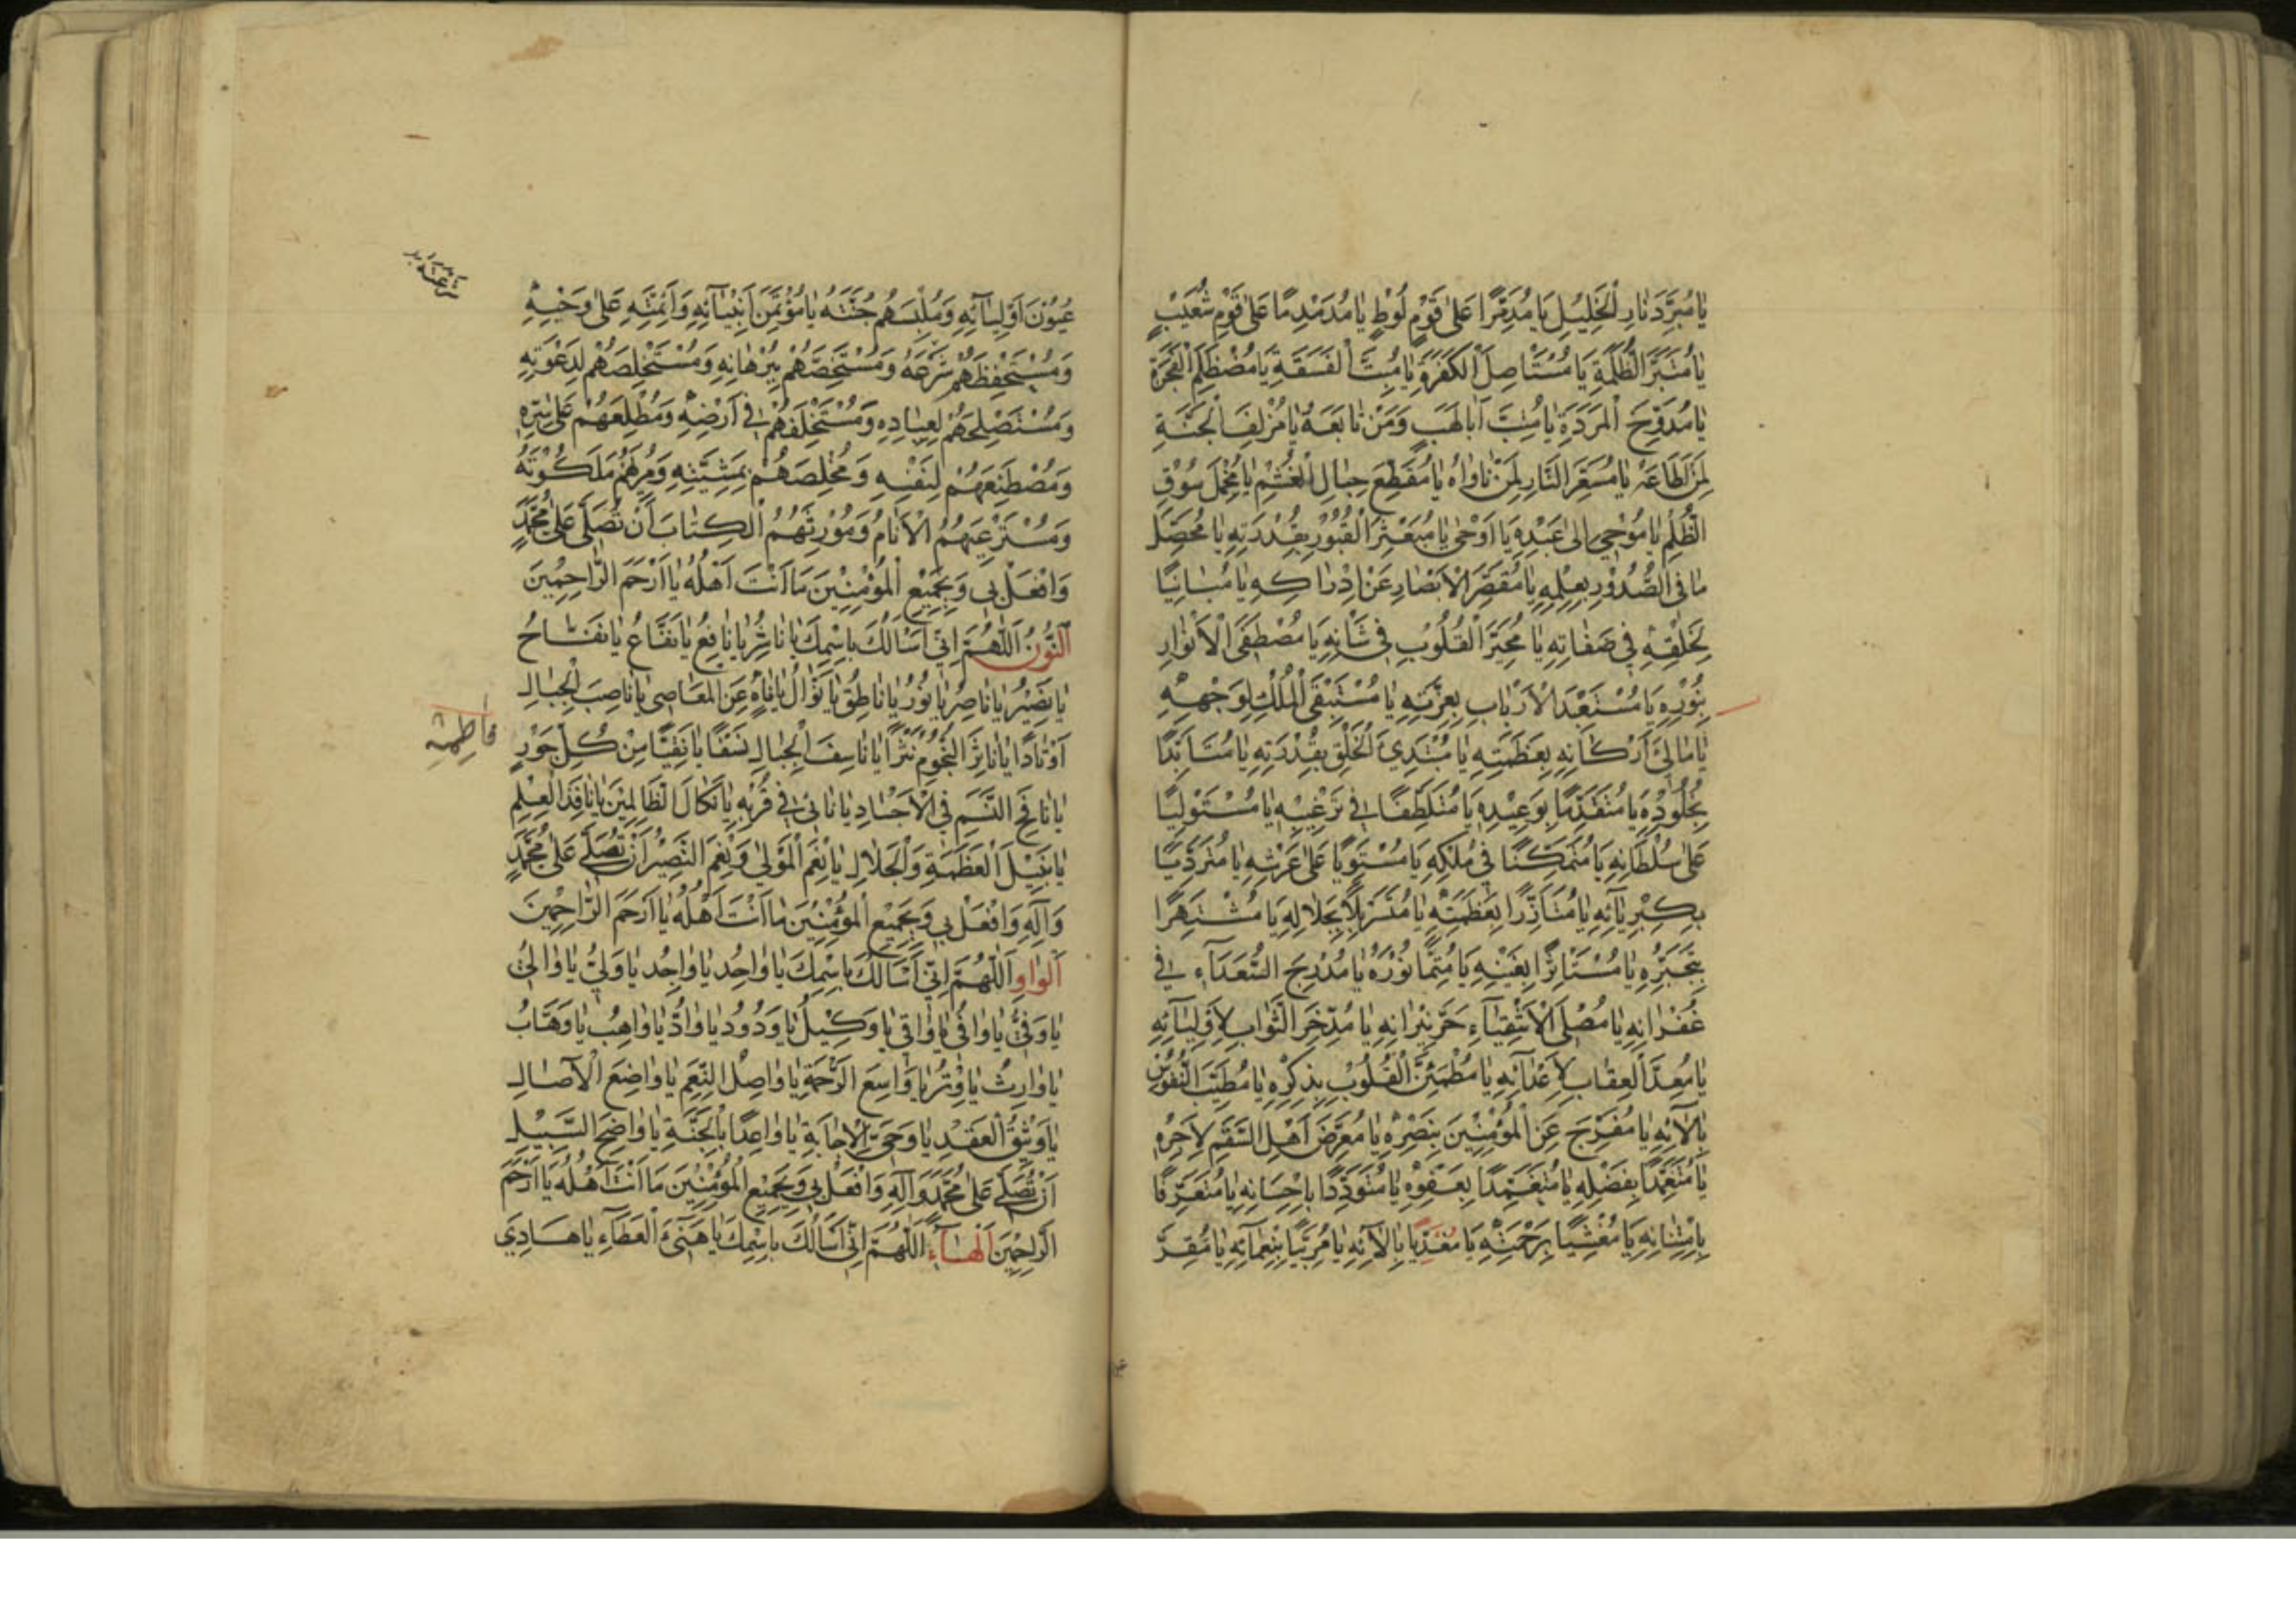 يَا مُبَرِّدَ نَارِ الْخَلِيلِ يَا مُدَمِّرًا عَلَى قَوْمِ لُوطٍ يَا مُدَمْدِمًا عَلَى قَوْمِ شُعَيْبٍ
يَا مُتَبِّرَ الظَّلَمَةِ يَا مُسْتَأْصِلَ الْكَفَرَةِ يَا مُبِتَّ الْفَسَقَةِ يَا مُصْطَلِمَ الْفَجَرَةِ
يَا مُدَوِّخَ الْمَرَدَةِ يَا مُتِبَّ أَبَا لَهَبٍ وَمَنْ تَابَعَهُ يَا مُزْلِفَ الْجَنَّةِ
لِمَنْ أَطَاعَهُ يَا مُسَعِّرَ النَّارِ لِمَنْ نَاوَاهُ يَا مُقَطِّعَ حِبَالِ الْغَشْمِ يَا مُخْمِلَ سُوقِ
الظُّلْمِ يَا مُوحِي إِلَى عَبْدِهِ يَا أَوْحَى يَا مُبَعْثِرَ الْقُبُورِ بِقُدْرَتِهِ يَا مُحَصِّلَ
مَا فِي الصُّدُورِ بِعِلْمِهِ يَا مُقَصِّرَ الْأَبْصَارِ عَنْ إِدْرَاكِهِ يَا مُبَايِنًا
لِخَلْقِهِ فِي صِفَاتِهِ يَا مُحَيِّرَ الْقُلُوبِ فِي شَأْنِهِ يَا مُصْطَفِيَ الْأَنْوَارِ
بِنُورِهِ يَا مُسْتَعْبِدَ الْأَرْبَابِ بِعِزَّتِهِ يَا مُسْتَبْقِيَ الْمُلْكِ لِوَجْهِهِ
يَا مَالِئَ أَرْكَانِهِ بِعَظَمَتِهِ يَا مُبْتَدِئَ الْخَلْقِ بِقُدْرَتِهِ يَا مُتَأَبِّدًا
بِخُلُودِهِ يَا مُتَقَدِّمًا بِوَعِيدِهِ يَا مُتَلَطِّفًا فِي تَرْغِيبِهِ يَا مُسْتَوْلِيًا
عَلَى سُلْطَانِهِ يَا مُتَمَكِّنًا فِي مُلْكِهِ يَا مُسْتَوِيًا عَلَى عَرْشِهِ يَا مُتَرَدِّيًا
بِكِبْرِيَائِهِ يَا مُتَأَزِّرًا بِعَظَمَتِهِ يَا مُتَسَرْبِلًا بِجَلَالِهِ يَا مُشْتَهِرًا
بِتَجَبُّرِهِ يَا مُسْتَأْثِرًا بِغَيْبِهِ يَا مُتِمًّا نُورَهُ يَا مُدْرِجَ السُّعَدَاءِ فِي
غُفْرَانِهِ يَا مُصْلِيَ الْأَشْقِيَاءِ حَرَّ نِيرَانِهِ يَا مُدَّخِرَ الثَّوَابِ لِأَوْلِيَائِهِ
يَا مُعِدَّ الْعِقَابِ لِأَعْدَائِهِ يَا مُطْمَئِنَّ الْقُلُوبِ بِذِكْرِهِ يَا مُطَيِّبَ النُّفُوسِ
بِآلَائِهِ يَا مُفَرِّجَ عَنِ الْمُؤْمِنِينَ بِنَصْرِهِ يَا مُعَرِّضَ أَهْلِ السَّقَمِ لِأَجْرِهِ
يَا مُتَغَمِّدًا بِفَضْلِهِ يَا مُتَغَمِّدًا بِعَفْوِهِ يَا مُتَوَدِّدًا بِإِحْسَانِهِ يَا مُتَعَرِّفًا
بِامْتِنَانِهِ يَا مُغَشِّيًا بِرَحْمَتِهِ يَا مُغَذِّيًا بِآلَائِهِ يَا مُرَبِّيًا بِنَعْمَائِهِ يَا مُقِرَّ
عُيُونَ أَوْلِيَائِهِ وَمُلْبِسَهُمْ جُنَّتَهُ يَا مُؤْتَمِنَ أَنْبِيَائِهِ وَأَئِمَّتِهِ عَلَى وَحْيِهِ
وَمُسْتَحْفِظَهُمْ شَرْعَهُ وَمُسْتَخِصَّهُمْ بِبُرْهَانِهِ وَمُسْتَخْلِصَهُمْ لِدَعْوَتِهِ
وَمُسْتَصْلِحَهُمْ لِعِبَادِهِ وَمُسْتَخْلِفَهُمْ فِي أَرْضِهِ وَمُطْلِعَهُمْ عَلَى سِرِّهِ
وَمُصْطَنِعَهُمْ لِنَفْسِهِ وَمُخْلِصَهُمْ بِمَشِيَّتِهِ وَمُرِيَهُمْ مَلَكُوتَهُ
وَمُسْتَرْعِيَهُمُ الْأَنَامَ وَمُورِثَهُمُ الْكِتَابَ أَنْ تُصَلِّيَ عَلَى مُحَمَّدٍ
وَافْعَلْ بِي وَبِجَمِيعِ الْمُؤْمِنِينَ مَا أَنْتَ أَهْلُهُ يَا أَرْحَمَ الرَّاحِمِينَ
اَلنُّونُ اَللَّهُمَّ إِنِّي أَسْأَلُكَ بِاسْمِكَ يَا نَاشِرُ يَا نَافِعُ يَا نَفَّاعُ يَا نَفَّاحُ
يَا نَصِيرُ يَا نَاصِرُ يَا نُورُ يَا نَاطِقُ يَا نَوَالُ يَا نَاهٍ عَنِ الْمَعَاصِي يَا نَاصِبَ الْجِبَالِ
أَوْتَادًا يَا نَاثِرَ النُّجُومِ نَثْرًا يَا نَاسِفَ الْجِبَالِ نَسْفًا يَا نَقِيًّا مِنْ كُلِّ جَوْرٍ
يَا نَافِخَ النَّسَمِ فِي الْأَجْسَادِ يَا نَائِي فِي قُرْبِهِ يَا نَكَالَ الظَّالِمِينَ يَا نَافِذَ الْعِلْمِ
يَا نَبِيلَ الْعَظَمَةِ وَالْجَلَالِ يَا نِعْمَ الْمَوْلَى وَنِعْمَ النَّصِيرُ أَنْ تُصَلِّيَ عَلَى مُحَمَّدٍ
وَآلِهِ وَافْعَلْ بِي وَبِجَمِيعِ الْمُؤْمِنِينَ مَا أَنْتَ أَهْلُهُ يَا أَرْحَمَ الرَّاحِمِينَ
اَلْوَاوِ اَللَّهُمَّ إِنِّي أَسْأَلُكَ بِاسْمِكَ يَا وَاحِدُ يَا وَاجِدُ يَا وَلِيُّ يَا وَالِي
يَا وَفِيُّ يَا وَافِي يَا وَاقِي يَا وَكِيلُ يَا وَدُودُ يَا وَادُّ يَا وَاهِبُ يَا وَهَّابُ
يَا وَارِثُ يَا وِتْرُ يَا وَاسِعَ الرَّحْمَةِ يَا وَاصِلَ النِّعَمِ يَا وَاضِعَ الْآصَالِ
يَا وَثِيقَ الْعَقْدِ يَا وَحِيَّ الْإِجَابَةِ يَا وَاعِدًا بِالْجَنَّةِ يَا وَاضِحَ السَّبِيلِ
أَنْ تُصَلِّيَ عَلَى مُحَمَّدٍ وَآلِهِ وَافْعَلْ بِي وَبِجَمِيعِ الْمُؤْمِنِينَ مَا أَنْتَ أَهْلُهُ يَا أَرْحَمَ
الرَّاحِمِينَ اَلْهَاءُ اَللَّهُمَّ إِنِّي أَسْأَلُكَ بِاسْمِكَ يَا هَنِيءَ الْعَطَاءِ يَا هَادِيَ